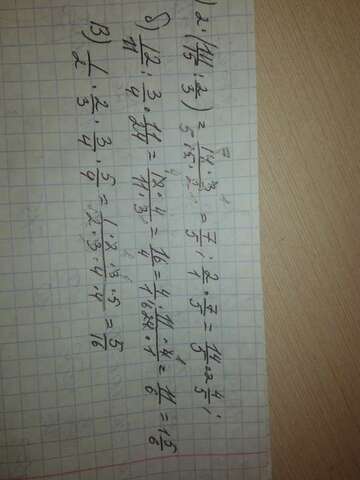 ) 2·(14/15 : 2/3) = 14·3/15·2 = 7/5; 2/1 · 7/5 = 14/5 = 2 4/5;
б) 12/11 : 3/4 · 11/24 = 12·4/11·3 = 16/4 = 4·11·4/1·24·1 = 11/6 = 1 5/6
в) 1/2 · 2/3 · 3/4 · 5/4 = 1·2·3·5/2·3·4·4 = 5/16